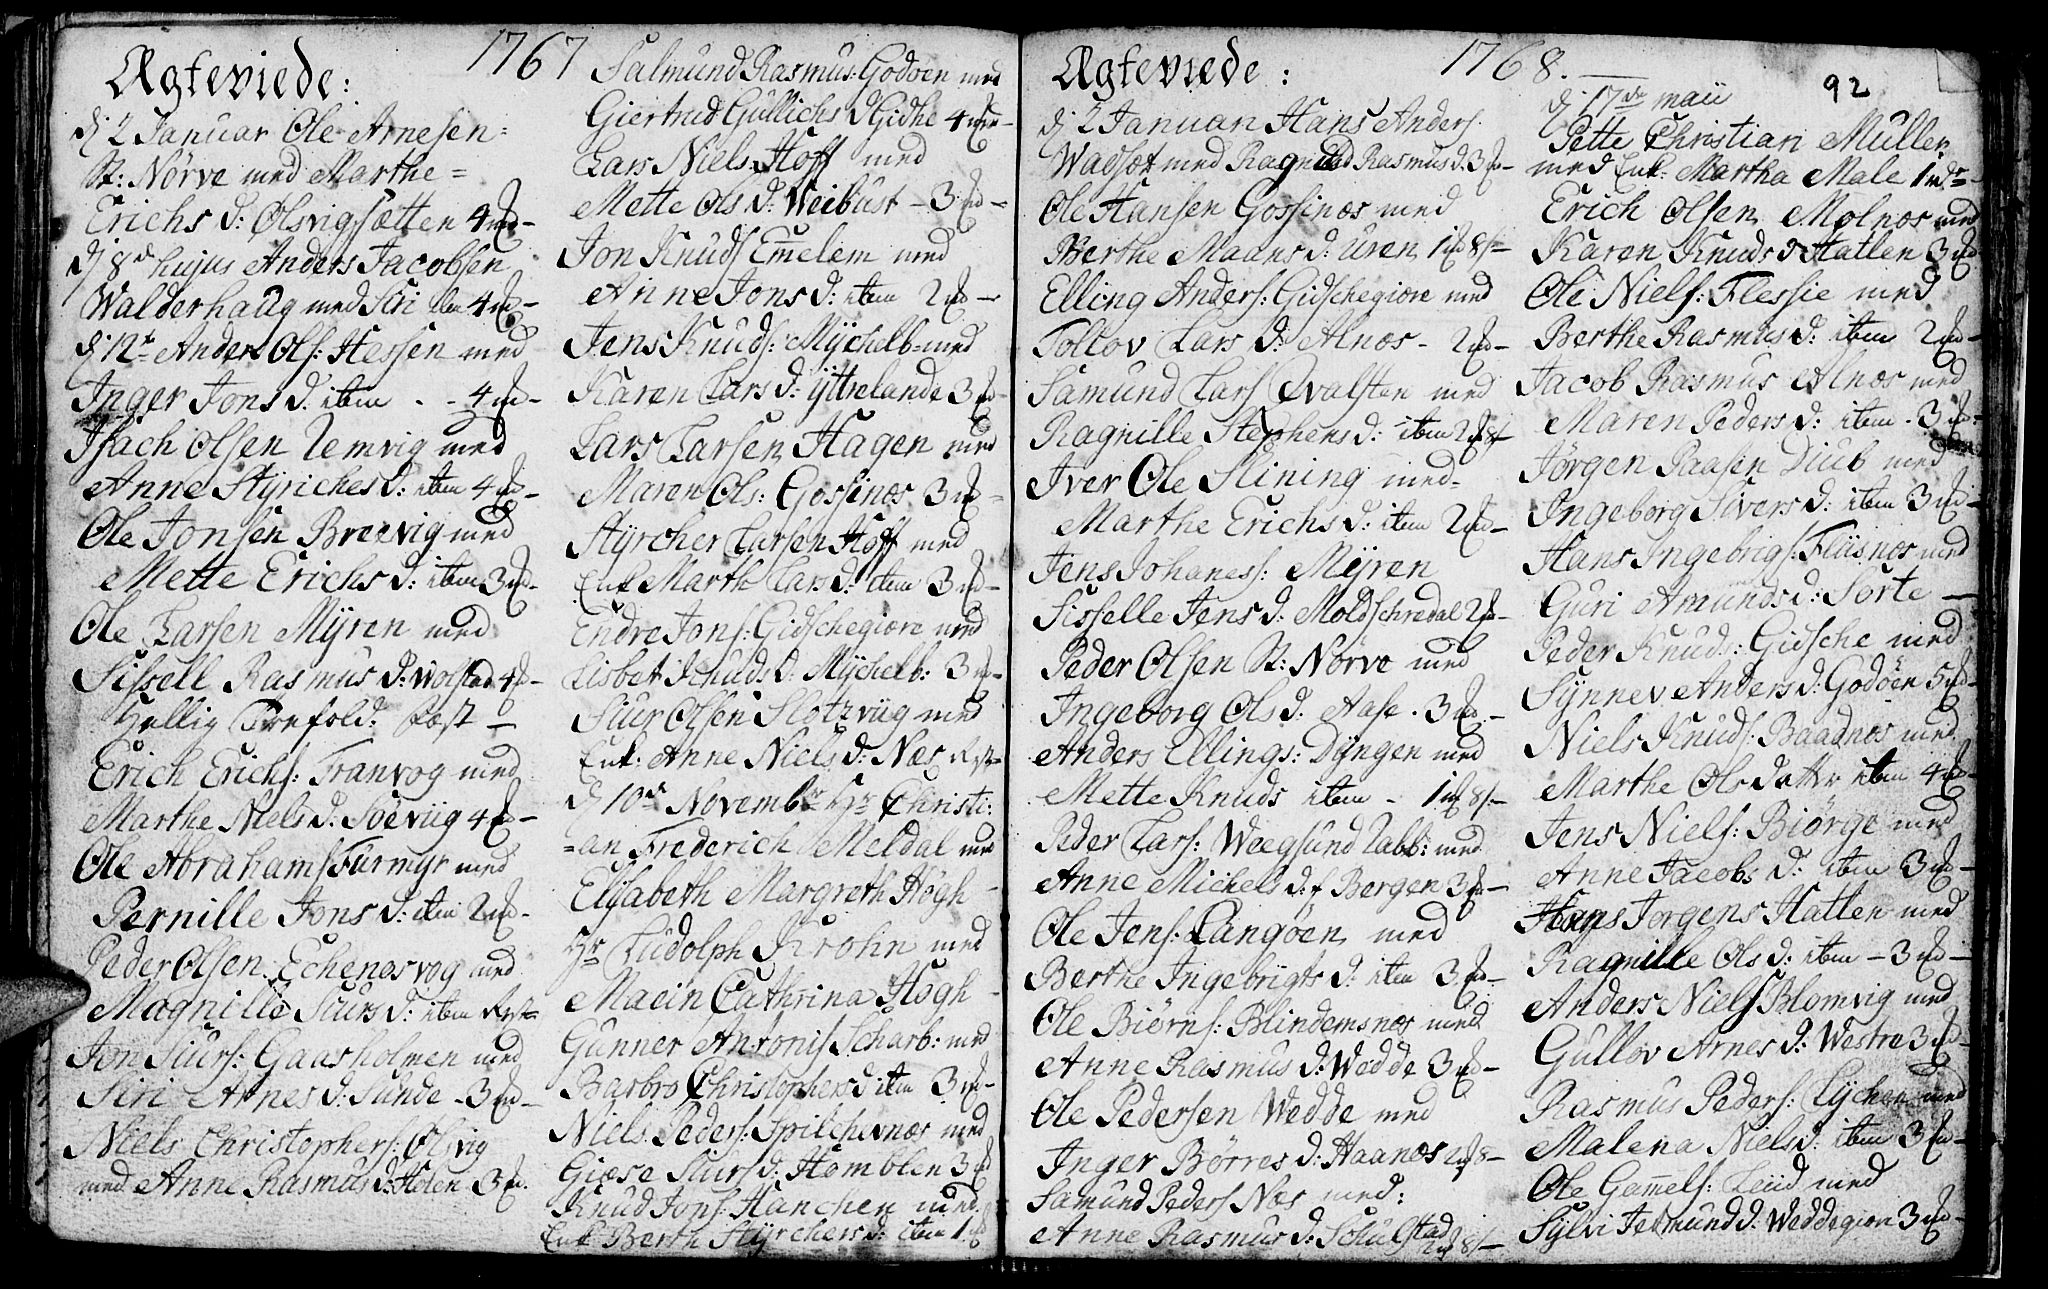 1767
Ægteviede:
d/ 2 Januar Ole Arnesen
St: Nörve med Marthe
Erichs d: Olsvigsætten 4 md
d/ 8 d hujus Anders Jacobsen
Walderhaug med Siri 4 md
d/ 12t Anders Ols: Hessen med
Inger Jons d: item 4 md
Isach Olsen Remvig med
Anne Styriches d: item 4 md
Ole Jonsen Breevig med
Mette Erichs d: item 3 md
Ole Larsen Myren med
Sissell Rasmus d: Wolstad 4
Hellig Trefold: Fest
Erich Erichs: Franvog med
Marthe Niels d: Söeviig 4
Ole Abrahams Furmyr med
Pernille Jons d: item 2 md
Peder Olsen Echenesvog med
Magnille Siurs d: item
Jon Siurs: Gaasholmen med
Siri Arnes d: Sunde 3 md
Niels Christophers: Olsvig
med Anne Rasmus d: Holen 3
Salmund Rasmus: Godöen med
Giertrud Gullichs d Gidske 4
Lars Niels Hoff med
Mette Ols d: Weibust 3
Jon Knuds Emelem med
Anne Jons d: item 2
Jens Knuds: Mychelb med
Karen Lars d: Yttrelande 3
Lars Larsen Hagen med
Maren Ols: Gossinæs 3
Styrcher Larsen Hoff med
Enk Marth Lars d: item 3
Endre Jons: Gidschegiære med
Lisbet Knuds d: Mychelb: 3
Siur Olsen Slotzviig med
Enk: Anne Niels d: Næs
d/ 10de Novembr Hr Christi:
=an Frederich Meldal med
Elisabeth Margreth Högh
Hr Ludolph Krohn med
Maein Cathrina Högh
Gunner Antonis Scharb: med
Barbro Christophers d item 3
Niels Peders: Spilchevnæs med
Giæse Siurs d: Homblen 3
Knud Jons Hanchen med
Enk Berth Styrchers d: item 1
1768.
92
Ægteviede:
d/ 2 Januar Hans Anders
Wadsæt med Ragnild Rasmus d. 3
Ole Hansen Gossinæs med
Berthe Maans d: Uren 1 md 8 s
Elling Anders: Gidschegiære med
Tollov Lars d: Alnæs 2
Samund Lars Qvalsten med
Ragnille Stephens d: item 2
Iver Ole Slining med
Marthe Erichs d: item 2
Jens Johanes: Myren
Sisselle Jens d: Moldschredal 2
Peder Olsen St: Nörve med
Ingeborg Ols d: Aase 3
Anders Ellings: Dyngen med
Mette Knuds item 1 8
Peder Lars: Wegsund Rabb: med
Anne Michels d: f Bergen 3
Ole Jens: Langöen med
Berthe Ingebrigts d: item 3
Ole Biörns: Blindemsnæs med
Anne Rasmus d: Wedde 3
Ole Pedersen Wedde med
Inger Börres d: Haanæs 2 8
Samund Peders Næs med:
Anne Rasmus d: Schulstad
2 8
d/ 17de maii
Pette Christian Muller
med Enk: Martha Male 1
Erich Olsen Molnæs med
Karen Knuds d Hatlen 3
Ole Niels: Flessie med
Berthe Rasmus d: item 2
Jacob Rasmus Alnæs med
Maren Peders d: item 3
Jörgen Paasen Diub med
Ingeborg Sivers d: item 3
Hans Ingebrigs: Flisnæs med
Guri Amunds d: Sorte
Peder Knuds: Gidsche med
Synnev Anders d: Godöen 5
Niels Knuds: Baadnæs med
Marthe Olsdatter item 4
Jens Niels: Biörge med
Anne Jacobs d: item 3
Hans Jorgens Hatlen med
Ragnille Ols d: item 3
Anders Niels Blomvig med
Gullov Arnes d: Westre 3
Rasmus Peders: Lychen med
Malena Niels d: item 3
Ole Gamels: Leiid med
Sylvi Jetmund d: Weddegion 3